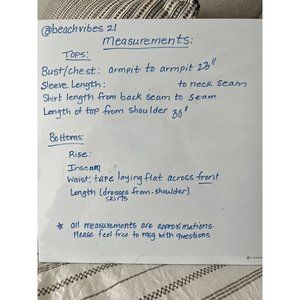 @beachvibes 21
Measurements:
Tops:
Bust/Chest: armpit to armpit 23"
Sleeve Length: to neck seam
Shirt length from back seam to seam
Length of top from shoulder 30"
Bottoms:
Rise:
Inseam
Waist, tape laying flat across front
Length (dresses from shoulder)
skirts
* all measurements are approximations.
Please feel free to msg with questions